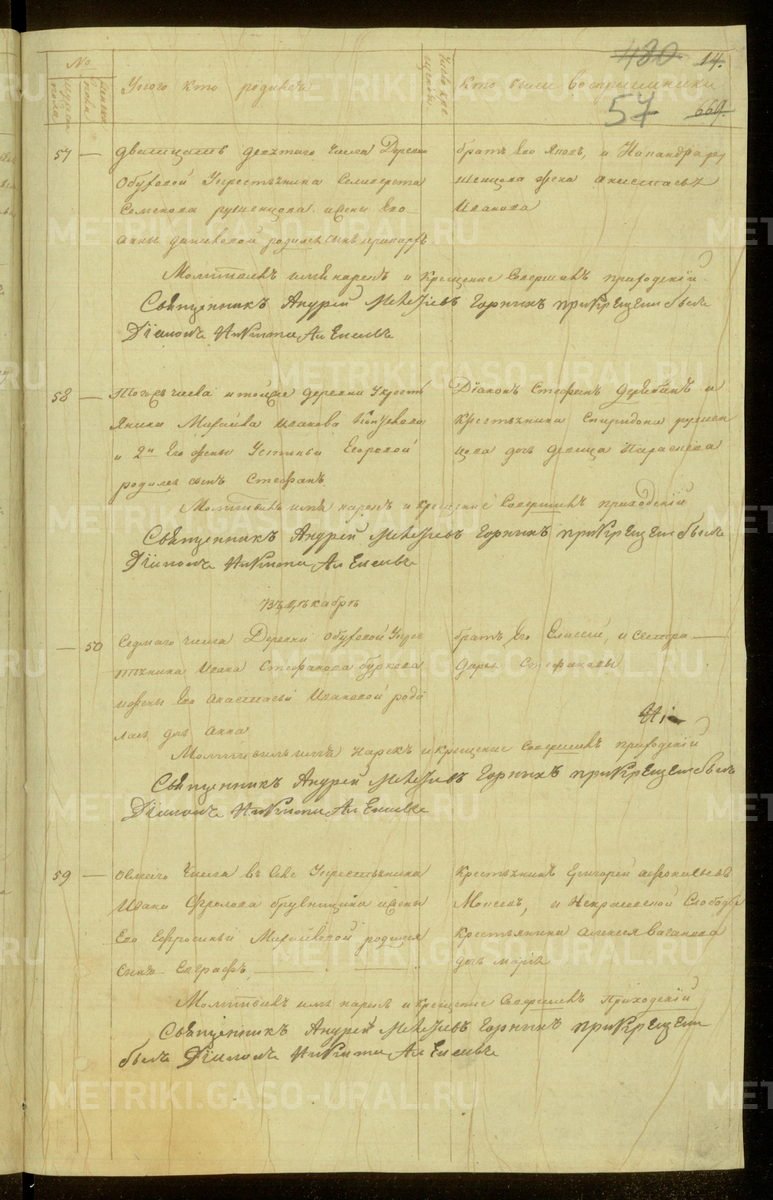 480 14.
№
У кого кто родился
Кто были восприемники
57 669.
57 — Дватцать девятаго числа Деревни
Обуховой Укрестьянина Селиверста
Семенова Румянцова ижены Его
Анны родился сынъ
братъ Его Яковъ, и
жена Анастасья
Иванова
Молитвилъ имя нарекъ и Крещение Совершилъ приходский
Священникъ Андрей Горнинъ при Крещении былъ
Дiаконъ Никита Алексеевъ
58 — Тогожъ числа итойже деревни Укресть
янина Михайла Иванова
и 2й Его жены Устиньи Егоровой
родился сынъ Стефанъ
Дiаконъ Стефанъ и
Крестьянина Спиридона румян
цова дочь девица Параскева
Молитвилъ имя нарекъ и Крещение Совершилъ приходский
Священникъ Андрей Горнинъ при Крещении былъ
Дiаконъ Никита Алексеевъ
Въ Декабре
— 50 Седмаго числа Деревни Обуховой Укрес
тьянина Ивана Стефанова буркова
ижены Его Анастасьи Ивановой роди
лась дочь Анна
братъ Его Елисей, и сестра
Дарья Стефановы
Молитвилъ имя Нарекъ и крещение Совершилъ приходский
Священникъ Андрей Горнинъ при Крещении былъ
Дiаконъ Никита Алексеевъ
59 — Осмаго Числа въ Селе Укрестьянина
Ивана Фролова ижены
Его Ефросиньи Михайловой родился
Сынъ Евграфъ
Крестьянинъ Григорей
Моисеевъ, и Некрасовской Слободы
Крестьянина Алексея Ваганова
дочь Марья
Молитвилъ имя нарекъ и Крещение Совершилъ Приходский
Священникъ Андрей Горнинъ при Крещении
былъ Дiаконъ Никита Алексеевъ
METRIKI.GASO-URAL.RU